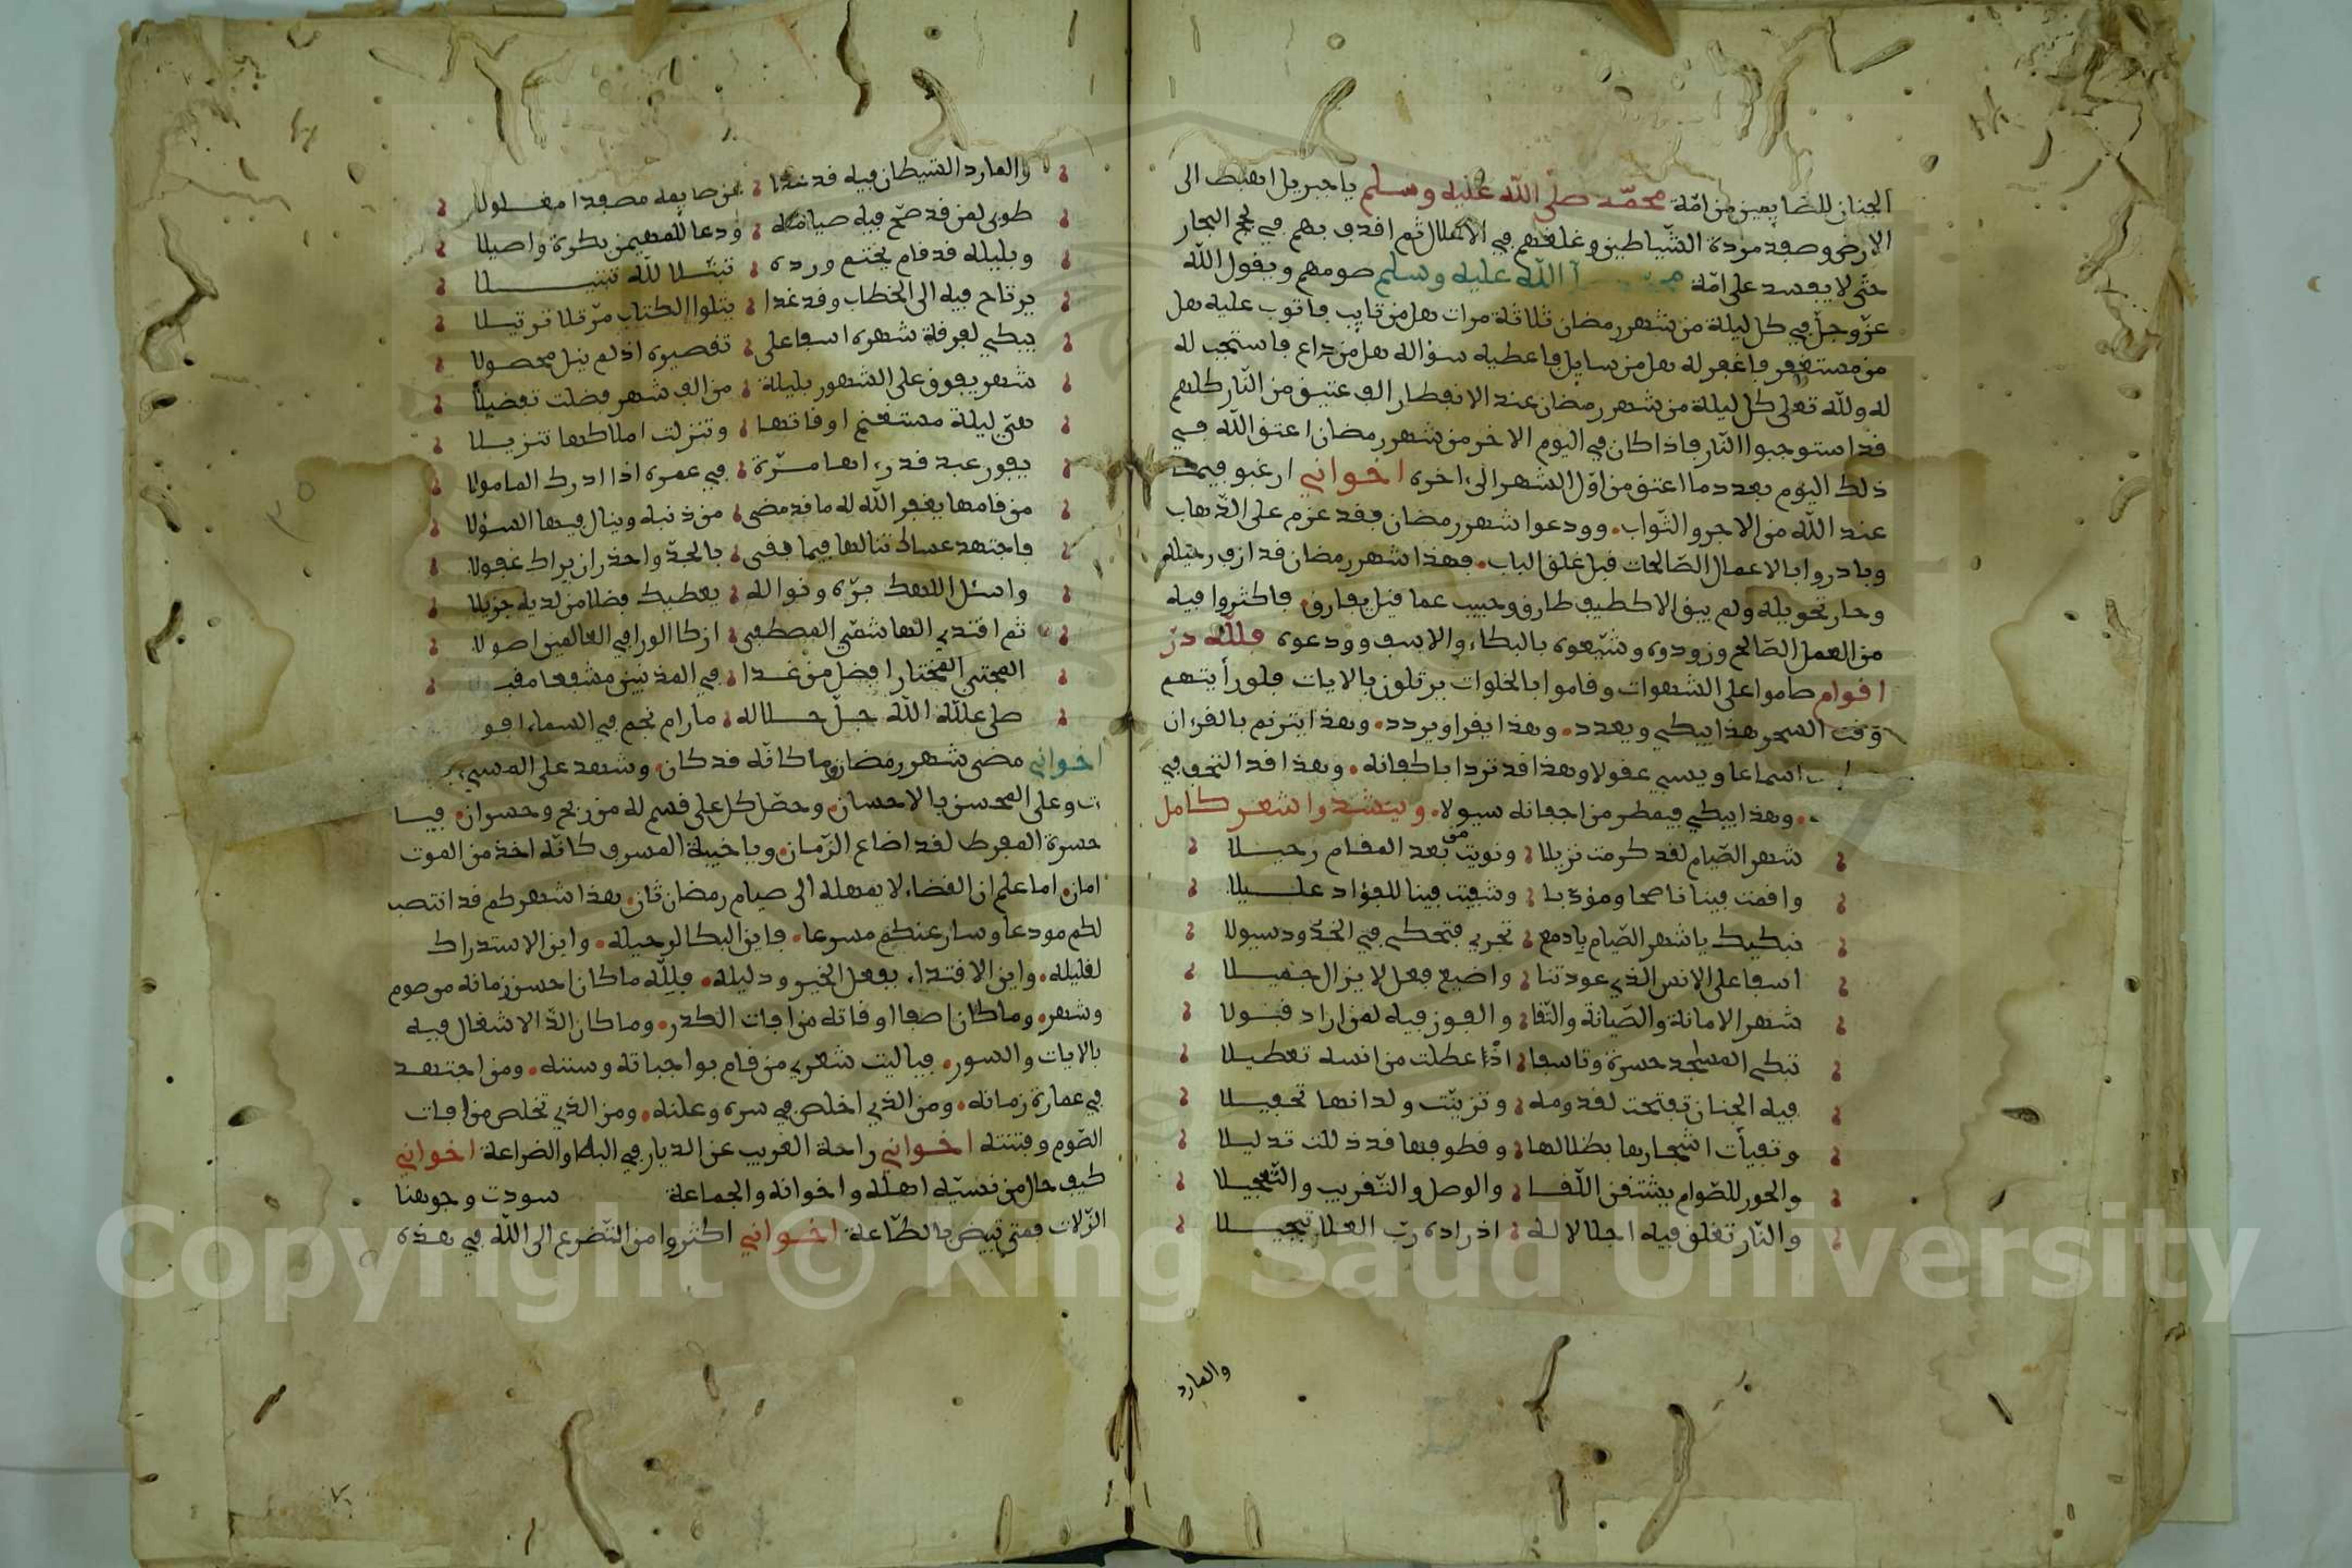 الجنان للصايمين من امّة محمّد صلى الله عليه وسلم يا جبريل اهبط الى
الارض وصفد مردة الشّياطين وغلّهم في الاغلال ثم اقذف بهم في لجج البحار
حتّى لا يفسد على امّة الله عليه وسلم صومهم ويقول الله
عزّ وجلّ في كل ليلة من شهر رمضان ثلاثة مرات هل من تايب فاتوب عليه هل
من مستغفر فاغفر له هل من سايل فاعطيه سؤاله هل من داع فاستجب له
له ولله تعلى كل ليلة من شهر رمضان عند الافطار الف عتيق من النّار كلهم
قد استوجبوا النّار فاذا كان في اليوم الاخر من شهر رمضان اعتق الله في
ذلك اليوم بعدد ما اعتق من اوّل الشهر الى اخره اخواني ارغبو فيما
عند الله من الاجر والثواب. وودعوا شهر رمضان فقد عزم على الذّهاب
وبادروا بالاعمال الصّالحات قبل غلق الباب. فهذا شهر رمضان قد ازف رحيله
وحار تحويله ولم يبق الا كطيف طارق وحبيب عما قيل يفارق. فاكثروا فيه
من العمل الصّالح وزودوه وشيّعوه بالبكاء والاسف وودعوه فللّه درّ
اقوام صاموا على الشهوات وقاموا بالخلوات يرتلون بالايات فلو رأيتهم
وقت السحر هذا يبكي ويعدد. وهذا يقرا ويردد. وهذا يترنم بالقرءان
اسماعا ويسبي عقولا وهذا قد تردا باكفانه. وهذا قد التحق في
. وهذا يبكي فيمطر من اجفانه سيولا. وينشدوا شعر كامل
شهر الصّيام لقد كرمت نزيلا ونويت من بعد المقام رحيلا
واقمت فينا ناصحا ومؤدبا وشفيت فينا للفؤاد عليلا
نبكيك يا شهر الصّيام بادمع تجري فتحكي في الخدّود سيولا
اسفا على الانس الذي عودتنا واضيع فعل لا يزال جميلا
شهر الامانة والصّيانة والتّقا والفوز فيه لمن اراد قبولا
تبكي المساجد حسرة وتاسفا اذا عطلت من انسه تعطيلا
فيه الجنان تفتحت لقدومه وتزيّنت ولدانها تحفيلا
وتفيأت اشجارها بظلالها وقطوفها قد ذللت تذليلا
والحور للصّوام يشتقن اللّقا والوصل والتّقريب والتّعجيلا
والنّار تغلق فيه اجلالا له اذ زاده ربّ العلا تبجيلا
والمارد
والمارد الشيطان فيه قد غدا عن صايمه مصفدا مغلولا
طوبى لمن قد صحّ فيه صيامه ودعا للمهيمن بكرة واصيلا
وبليله قد قام يختم ورده تبتّلا للّه تبتيلا
يرتاح فيه الى الخطاب وقد غدا يتلوا الكتاب مرّتلا ترتيلا
يبكي لفرقة شهره اسفا على تقصيره اذ لم ينل محصولا
شهر يفوق على الشهور بليلة من الف شهر فضلت تفضيلا
هي ليلة مستغنم اوقاتها وتنزلت املاكها تنزيلا
يفوز عبد قد رءاها مرّة في عمره اذا ادرك المامولا
من قامها يغفر الله له ما قد مضى من ذنبه وينال فيها السؤلا
فاجتهد عساك تنالها فيما بقي بالجدّ واحذر ان يراك غفولا
واسئل الاهك برّه ونواله يعطيك فضلا من لديه جزيلا
ثم اقتدي الهاشمّي المصطفى ازكا الورا في العالمين اصولا
المجتبى المختار افضل من غدا في المذنبين مشفعا
صلى عليه الله جلّ جلاله ما رام نجم في السماء
اخواني مضى شهر رمضان وما كانّه قد كان. وشهد على المسيء
وعلى المحسن بالاحسان. وحصّل كل على قسم له من ربح وخسران. فيا
حسرة المفرط لقد اضاع الزّمان. ويا خيبة المسرف كانّه اخذ من الموت
امان. اما علم ان القضاء لا يمهله الى صيام رمضان ثان. هذا شهركم قد انتصب
لكم مودعا وسار عنكم مسرعا. فاين البكا لرحيله. واين الاستدراك
لقليله. واين الاقتداء بفعل الخير ودليله. فللّه ما كان احسن زمانه من صوم
وشهر. وما كان اصفا اوقاته من افات الكدر. وما كان الذّ الاشغال فيه
بالايات والسور. فيا ليت شعري من قام بواجباته وسننه. ومن اجتهد
في عمارة زمانه. ومن الذي اخلص في سره وعلنه. ومن الذي تخلص من افات
الصّوم وفتنته اخواني راحة الغريب عن الديار في البكا والضراعة اخواني
كيف حال من نسيّه اهله واخوانه والجماعة سودت وجوهنا
الزّلات فمتى تبيض بالطّاعة اخواني اكثروا من التّضرع الى الله في هذه
Copyright © King Saud University